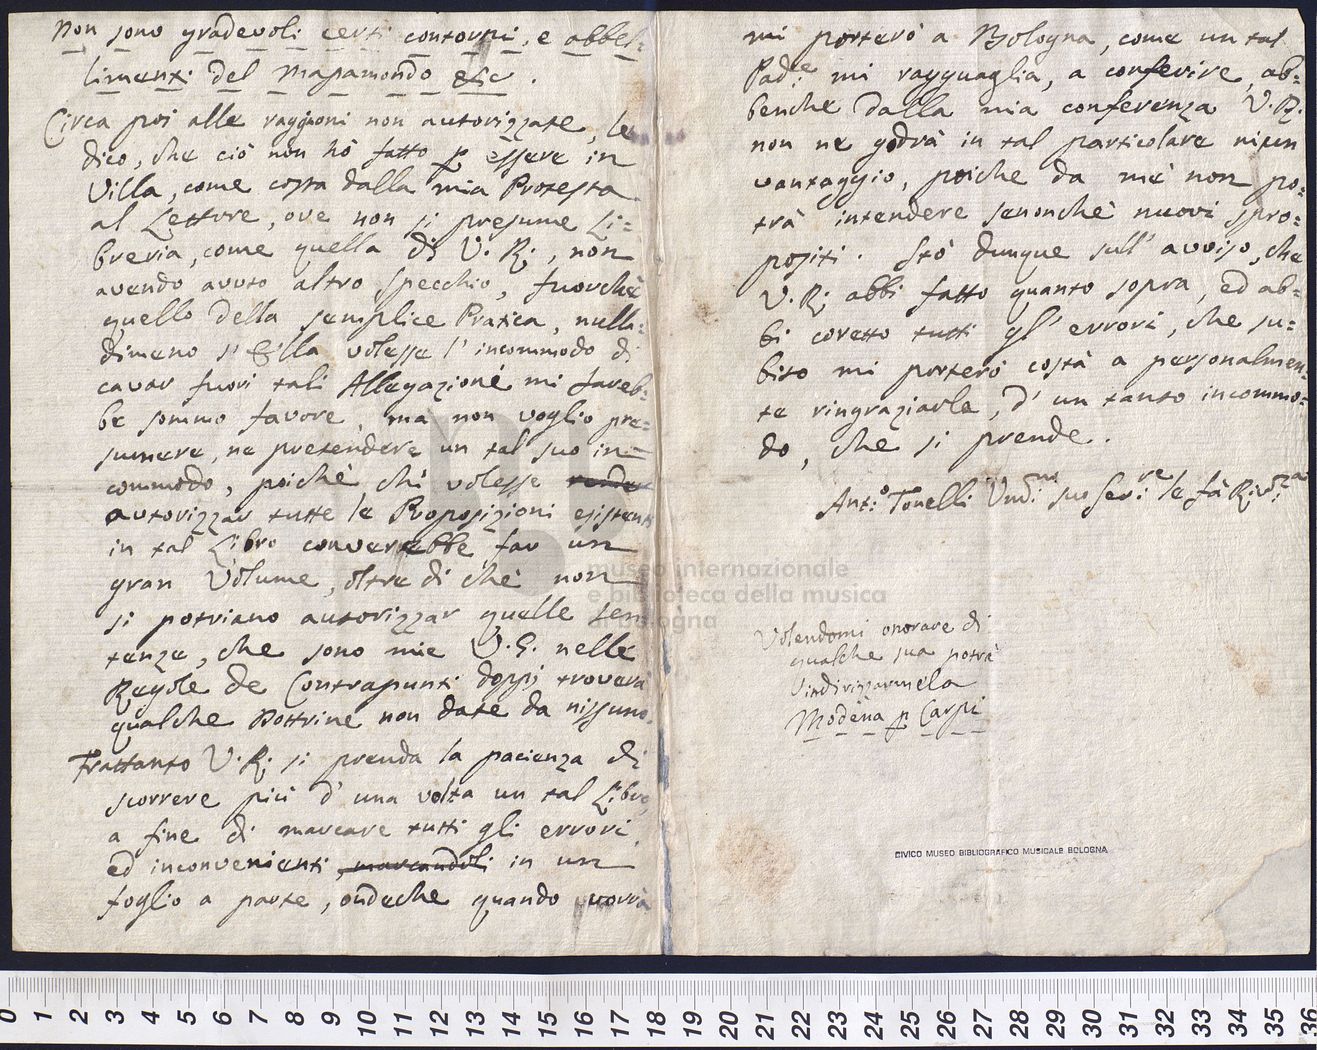 Non sono gradevoli certi contorni, e abbel:
limenti del Mapamondo etc.
Circa poi alle raggioni non autorizzate, le
dico, che ciò non hò fatto p essere in
Villa, come costa dalla mia Protesta
al Lettore, ove non si presume Li:
breria, come quella di V. R., non
avendo avuto altro specchio, fuorchè
quello della semplice Pratica, nulla:
dimeno s'Ella volesse l'incommodo di
cavar fuori tali Allegazioni mi fareb:
be sommo favore, ma non voglio pre:
sumere, ne pretendere un tal suo in:
commodo, poichè chi volesse
autorizzar tutte le Proposizioni esistenti
in tal Libro converrebbe far un
gran Volume, oltre di chè non
si potriano autorizzar quelle sen
tenze, che sono mie V. G. nelle
Regole de Contrapunti doppj troverà
qualche Dottrine non date da nissuno.
Frattanto V. R. si prenda la pacienza di
scorrere più d'una volta un tal Libro,
a fine di marcare tutti gli errori,
ed inconvenienti marcandoli in un
foglio a parte, ondeche quando vorrà
mi porterò a Bologna, come un tal
Pad:e mi ragguaglia, a conferire, ab:
benche dalla mia conferenza V. R.
non ne godrà in tal particolare niun
vantaggio, poiche da mè non po:
trà intendere senonchè nuovi spro:
positi. Stò dunque sull'avviso, che
V. R. abbi fatto quanto sopra, ed ab:
bi coretto tutti gl'errori, che su:
bito mi porterò costà a personalmen:
te ringraziarle, d'un tanto incommo:
do, che si prende.
Ant:o Tonelli suo Ser:re le fà
Volendomi onorare di
qualche sua potrà
indirizzarmela
Modena p Carpi
CIVICO MUSEO BIBLIOGRAFICO MUSICALE BOLOGNA
museo internazionale
e biblioteca della musica
di bologna
0 1 2 3 4 5 6 7 8 9 10 11 12 13 14 15 16 17 18 19 20 21 22 23 24 25 26 27 28 29 30 31 32 33 34 35 36